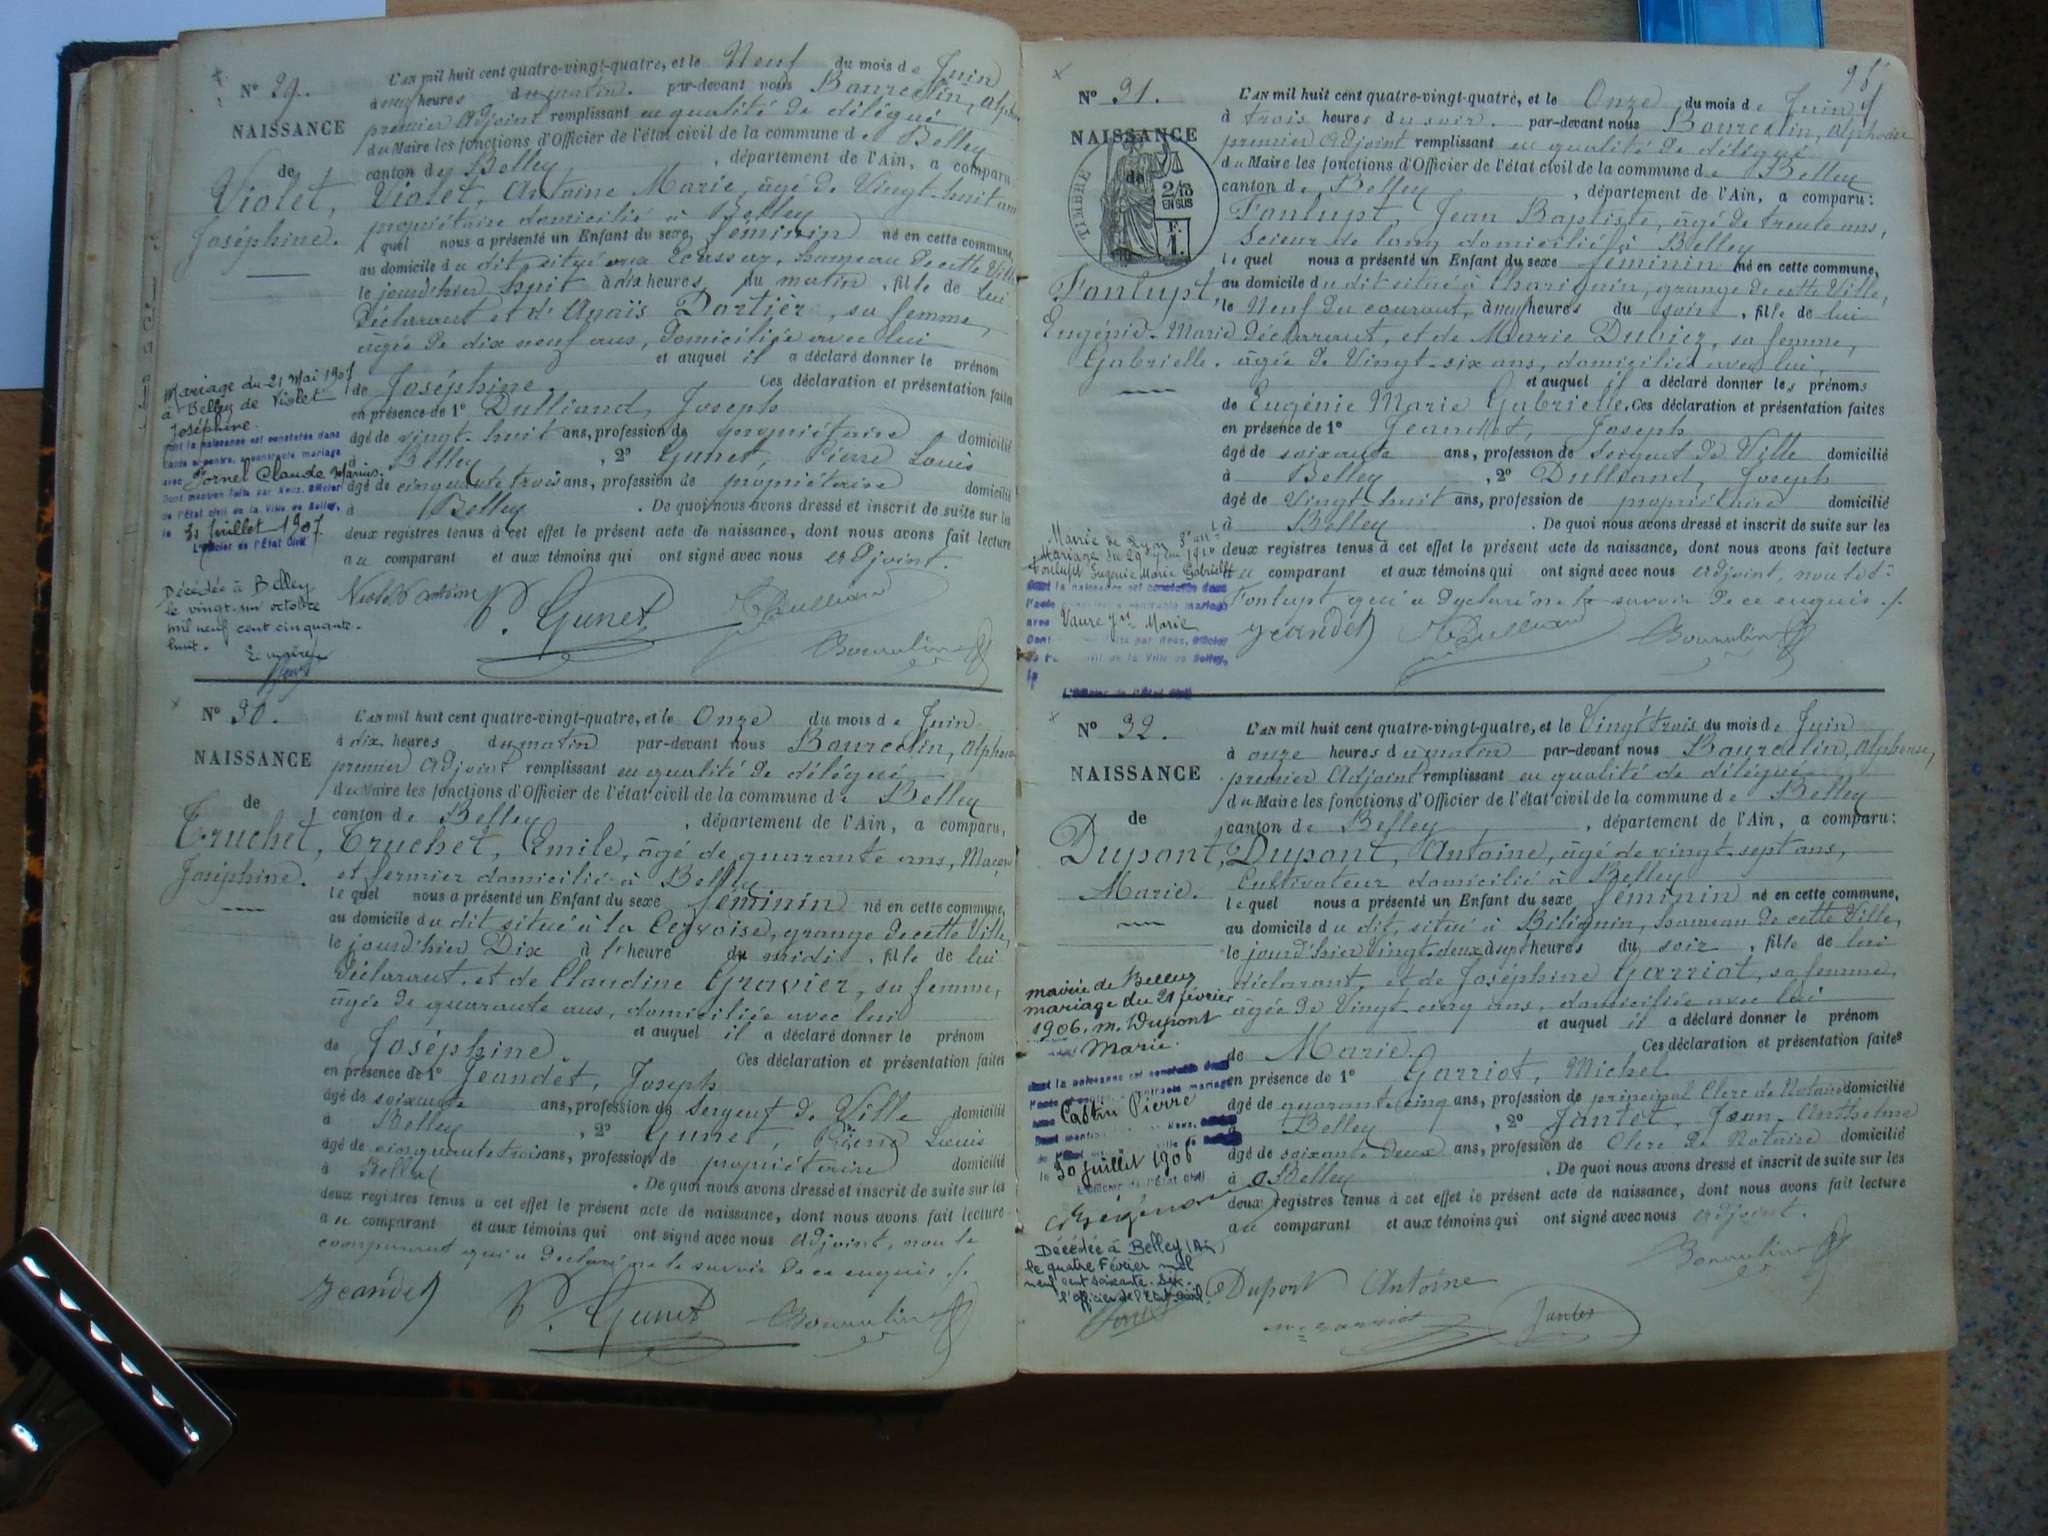 Nº 29.
NAISSANCE
de
Violet,
Joséphine.
L'AN mil huit cent quatre-vingt-quatre, et le Neuf du mois de Juin
à heures du matin. par-devant nous Bourcelin, Alph
premier adjoint remplissant en qualité de délégué
du Maire les fonctions d'Officier de l'état civil de la commune de Belley
canton de Belley, département de l'Ain, a comparu
Violet, Antoine Marie, âgé de Vingt-huit ans
propriétaire domicilié à Belley
lequel nous a présenté un Enfant du sexe féminin né en cette commune,
au domicile du dit, situé hameau de cette Ville
le jourd'hier huit à dix heures du matin, fille de lui
déclarant et d' Anaïs Dortier, sa femme,
âgée de dix neuf ans, domiciliée avec lui
et auquel il a déclaré donner le prénom
de Joséphine. Ces déclaration et présentation faites
en présence de 1º Dulliand, Joseph
âgé de vingt-huit ans, profession de propriétaire domicilié
à Belley, 2º Gunet, Pierre Louis
âgé de cinquante trois ans, profession de propriétaire domicilié
à Belley. De quoi nous avons dressé et inscrit de suite sur les
deux registres tenus à cet effet le présent acte de naissance, dont nous avons fait lecture
au comparant et aux témoins qui ont signé avec nous adjoint.
Violet Antoine P. Gunet JDulliand Bourcelin
Mariage du 21 Mai 1907
à Belley de Violet
Joséphine
dont la naissance est constatée dans
l'acte ci-contre, a contracté mariage
avec Fornel Claude Marius
Dont mention faite par Nous, Officier
de l'État civil de la Ville de Belley,
le 31 Juillet 1907.
L'Officier de l'État Civil
Décédée à Belley
le vingt-un octobre
mil neuf cent cinquante-
huit.
Le maire
Nº 30.
NAISSANCE
de
Truchet,
Joséphine.
L'AN mil huit cent quatre-vingt-quatre, et le Onze du mois de Juin
à dix heures du matin par-devant nous Bourcelin, Alphon
premier adjoint remplissant en qualité de délégué
du Maire les fonctions d'Officier de l'état civil de la commune de Belley
canton de Belley, département de l'Ain, a comparu,
Truchet, Emile, âgé de quarante ans, Maçon
et fermier domicilié à Belley
lequel nous a présenté un Enfant du sexe féminin né en cette commune,
au domicile du dit situé à la grange de cette Ville,
le jourd'hier Dix à 1 heure du midi, fille de lui
déclarant, et de Claudine Gravier, sa femme,
âgée de quarante ans, domiciliée avec lui
et auquel il a déclaré donner le prénom
de Joséphine. Ces déclaration et présentation faites
en présence de 1º Jeandet, Joseph
âgé de soixante ans, profession de Sergent de Ville domicilié
à Belley, 2º Gunet, Pierre Louis
âgé de cinquante trois ans, profession de propriétaire domicilié
à Belley. De quoi nous avons dressé et inscrit de suite sur les
deux registres tenus à cet effet le présent acte de naissance, dont nous avons fait lecture
au comparant et aux témoins qui ont signé avec nous adjoint, non le
comparant qui a déclaré ne le savoir de ce enquis ./.
Jeandet P. Gunet Bourcelin
95
Nº 31.
NAISSANCE
de
TIMBRE
2/10
EN SUS
F.
1.
Fonlupt,
Eugénie-Marie
Gabrielle.
L'AN mil huit cent quatre-vingt-quatre, et le Onze du mois de Juin
à trois heures du soir. par-devant nous Bourcelin, Alphonse
premier adjoint remplissant en qualité de délégué
du Maire les fonctions d'Officier de l'état civil de la commune de Belley
canton de Belley, département de l'Ain, a comparu:
Fonlupt, Jean Baptiste, âgé de trente ans,
Scieur de long domicilié à Belley
lequel nous a présenté un Enfant du sexe féminin né en cette commune,
au domicile du dit situé à grange de cette Ville,
le Neuf du courant, à neuf heures du soir, fille de lui
déclarant, et de Marie Dubier, sa femme,
âgée de Vingt-six ans, domiciliée avec lui,
et auquel il a déclaré donner les prénoms
de Eugénie Marie Gabrielle. Ces déclaration et présentation faites
en présence de 1º Jeandet, Joseph
âgé de soixante ans, profession de Sergent de Ville domicilié
à Belley, 2º Dulliand, Joseph
âgé de Vingt-huit ans, profession de propriétaire domicilié
à Belley. De quoi nous avons dressé et inscrit de suite sur les
deux registres tenus à cet effet le présent acte de naissance, dont nous avons fait lecture
au comparant et aux témoins qui ont signé avec nous adjoint, non led.t
Fonlupt qui a déclaré ne le savoir de ce enquis ./.
Jeandet JDulliand Bourcelin
Mairie de Lyon
Mariage du 20
Fonlupt Eugénie Marie Gabrielle
dont la naissance est constatée dans
l'acte mariage
avec Vaure Marie
Dont faite par Nous, Officier
de la Ville de Belley,
le
L'Officier de l'État Civil
Nº 32.
NAISSANCE
de
Dupont,
Marie.
L'AN mil huit cent quatre-vingt-quatre, et le Vingt-trois du mois de Juin
à onze heures du matin par-devant nous Bourcelin, Alphonse,
premier Adjoint remplissant en qualité de délégué
du Maire les fonctions d'Officier de l'état civil de la commune de Belley
canton de Belley, département de l'Ain, a comparu:
Dupont, Antoine, âgé de vingt-sept ans,
Cultivateur domicilié à Belley
lequel nous a présenté un Enfant du sexe féminin né en cette commune,
au domicile du dit, situé à Bilignin, hameau de cette Ville,
le jourd'hier vingt-deux à sept heures du soir, fille de lui
déclarant, et de Joséphine Garriot, sa femme,
âgée de Vingt-cinq ans, domiciliée avec lui
et auquel il a déclaré donner le prénom
de Marie. Ces déclaration et présentation faites
en présence de 1º Garriot, Michel
âgé de quarante cinq ans, profession de principal Clerc de Notaire domicilié
à Belley, 2º Jantet, Jean-Anthelme
âgé de soixante deux ans, profession de Clerc de Notaire domicilié
à Belley. De quoi nous avons dressé et inscrit de suite sur les
deux registres tenus à cet effet le présent acte de naissance, dont nous avons fait lecture
au comparant et aux témoins qui ont signé avec nous adjoint.
Bourcelin
Dupont Antoine
Garriot Jantet
mairie de Belley
mariage du 21 février
1906, m. Dupont
Marie.
dont la naissance est constatée dans
l'acte contracté mariage
avec Castin Pierre
Dont mention Nous,
de l'État ville de
le 30 juillet 1906
L'Officier de l'État Civil
Décédée à Belley (Ain)
le quatre Février mil
neuf cent soixante-six.
l'officier de l'Etat civil.